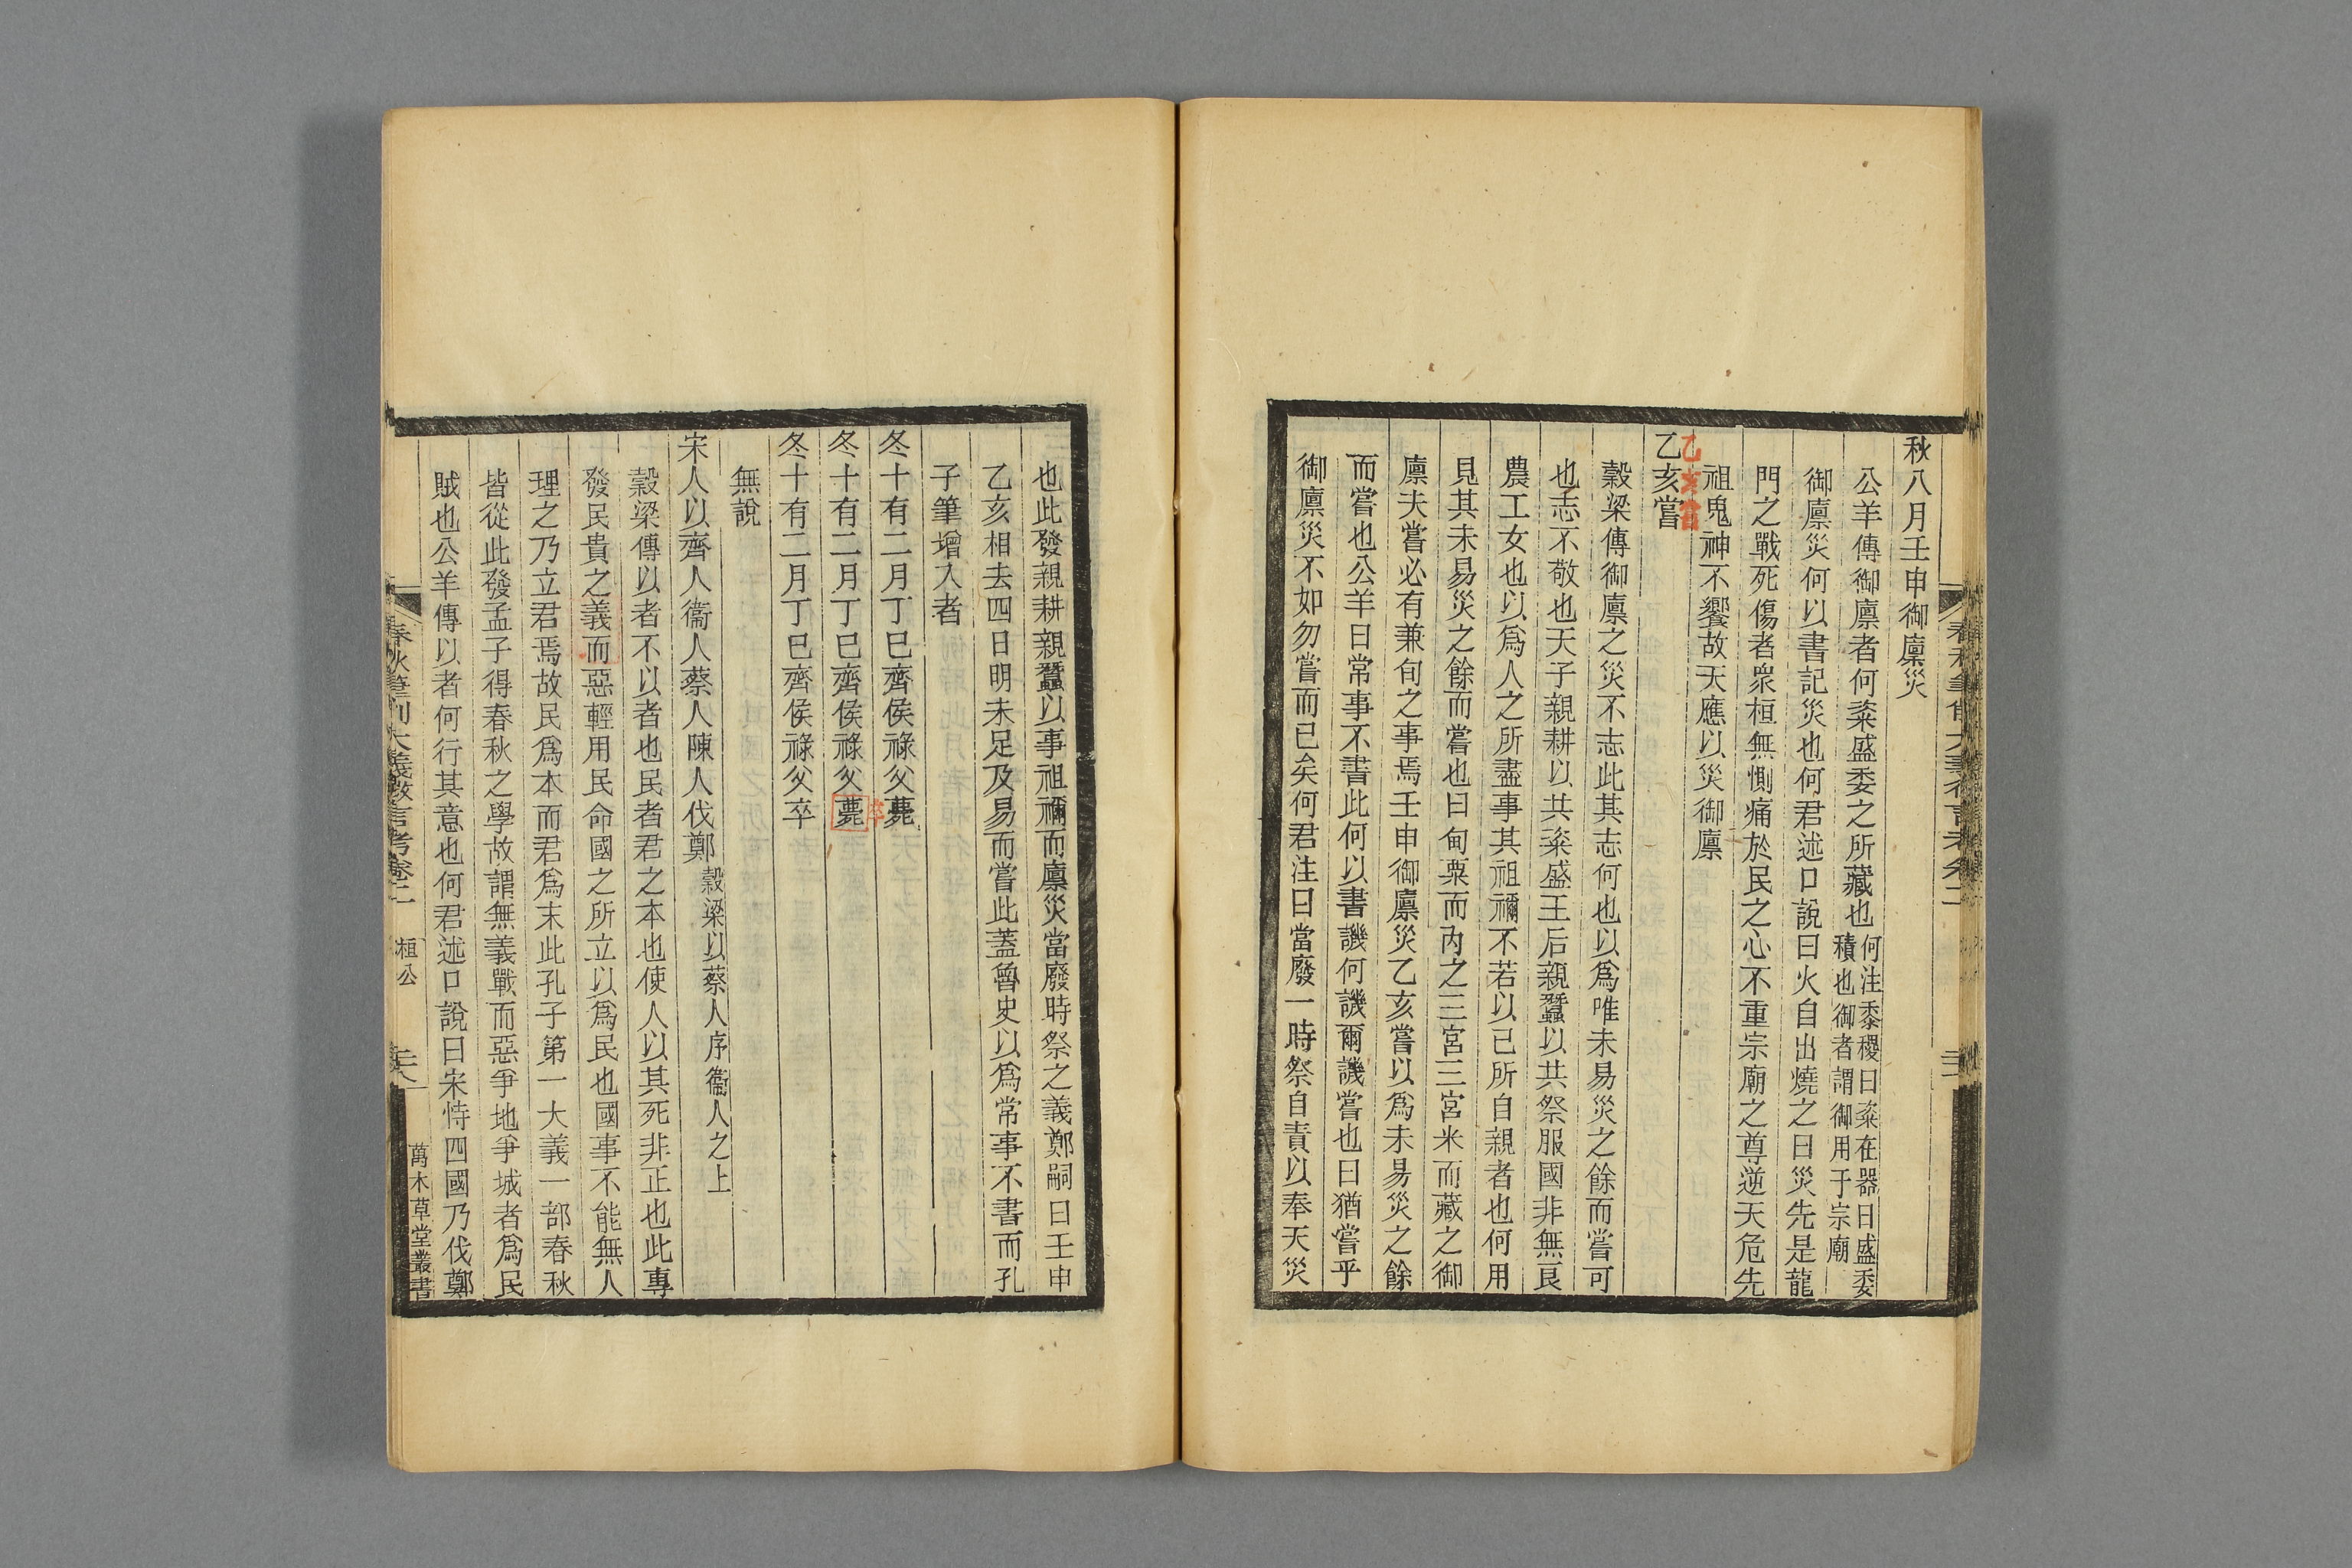 秋八月壬申御廩災
公羊傳御廩者何粢盛委之所藏也何注黍稷曰粢在器曰盛委積也御者謂御用于宗廟
御廩災何以書記災也何君述口說曰火自出燒之曰災先是龍
門之戰死傷者眾桓無惻痛於民之心不重宗廟之尊逆天危先
祖鬼神不饗故天應以災御廩
乙亥嘗
乙亥嘗
穀梁傳御廩之災不志此其志何也以爲唯未易災之餘而嘗可
也志不敬也天子親耕以共粢盛王后親蠶以共祭服國非無良
農工女也以爲人之所盡事其祖禰不若以已所自親者也何用
見其未易災之餘而嘗也曰甸粟而內之三宮三宮米而藏之御
廩夫嘗必有兼旬之事焉壬申御廩災乙亥嘗以爲未易災之餘
而嘗也公羊曰常事不書此何以書譏何譏爾譏嘗也曰猶嘗乎
御廩災不如勿嘗而已矣何君注曰當廢一時祭自責以奉天災
也此發親耕親蠶以事祖禰而廩災當廢時祭之義鄭嗣曰壬申
乙亥相去四日明未足及易而嘗此蓋魯史以爲常事不書而孔
子筆增入者
冬十有二月丁巳齊侯祿父薨
卒
冬十有二月丁巳齊侯祿父薨
冬十有二月丁巳齊侯祿父卒
無說
宋人以齊人衞人蔡人陳人伐鄭穀梁以蔡人序衞人之上
穀梁傳以者不以者也民者君之本也使人以其死非正也此專
發民貴之義而惡輕用民命國之所立以爲民也國事不能無人
理之乃立君焉故民爲本而君爲末此孔子第一大義一部春秋
皆從此發孟子得春秋之學故謂無義戰而惡爭地爭城者爲民
賊也公羊傳以者何行其意也何君述口說曰宋恃四國乃伐鄭
春秋筆削大義微言考卷二 桓公 萬木草堂叢書